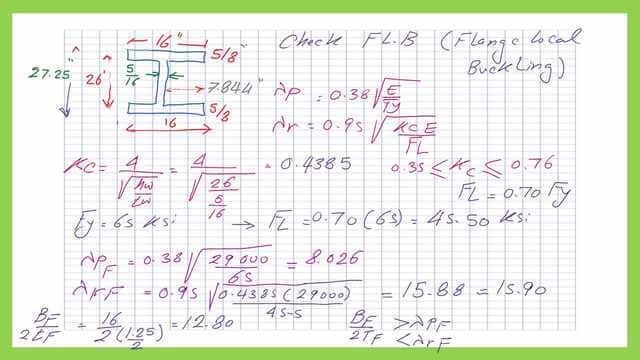 16" 5/8" Check FL.B (Flange Local
27.25" 26" 5/16 7.844" Buckling)
16 5/8
λP = 0.38 √(E/Fy)
λr = 0.95 √(KC E/FL)
KC = 4/√(hw/tw) = 4/√(26/(5/16)) = 0.4385 0.35 ≤ KC ≤ 0.76
FL = 0.70 Fy
Fy = 65 Ksi → FL = 0.70 (65) = 45.50 Ksi
λPF = 0.38 √(29000/65) = 8.026
λRF = 0.95 √(0.4385(29000)/45.5) = 15.88 = 15.90
BF/2tF = 16/2(1.25/2) = 12.80 BF/2TF > λPF
< λrF